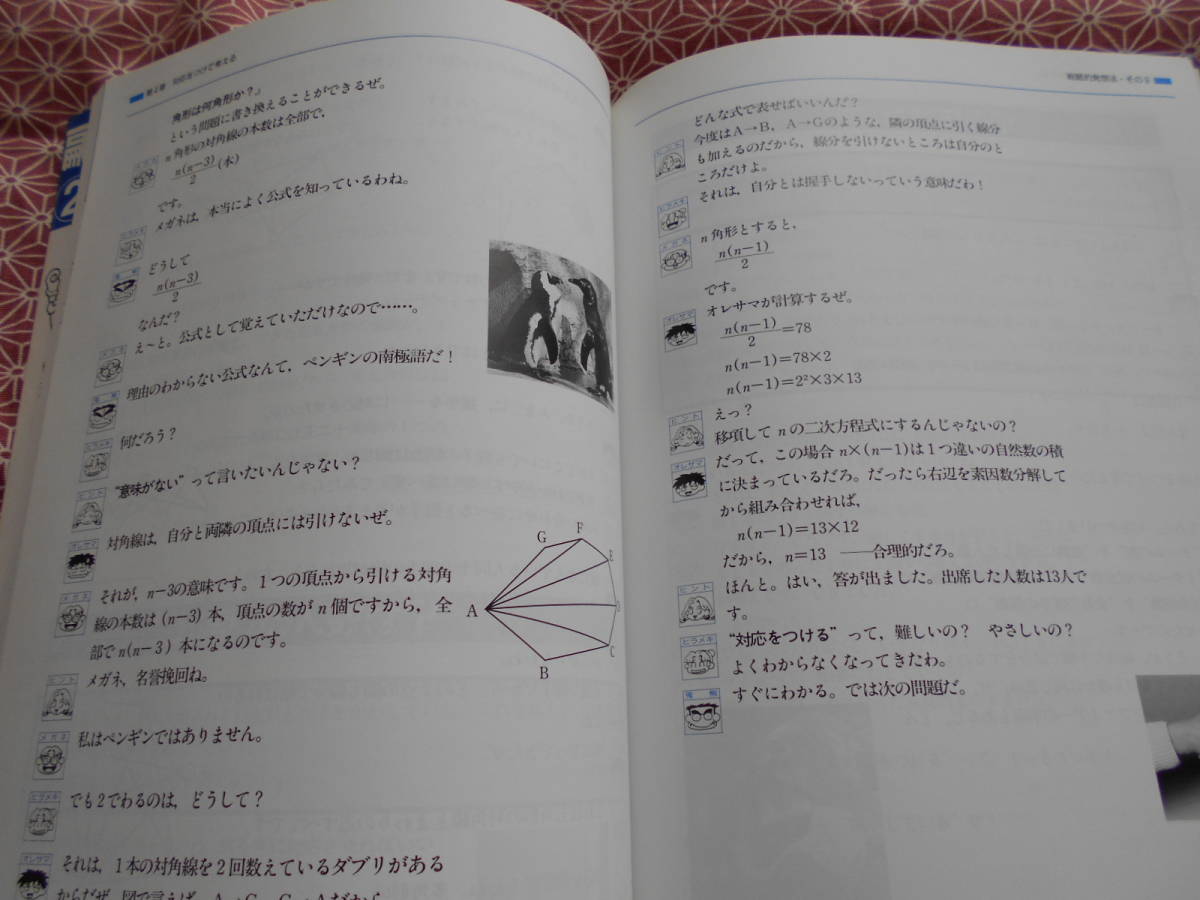 第4章 対応をつけて考える
角形は何角形か?」
という問題に書き換えることができるぜ。
メガネ
n角形の対角線の本数は全部で,
n(n−3)
2
(本)
です。
ヒラメキ
メガネは,本当によく公式を知っているわね。
どうして
n(n−3)
2
なんだ?
メガネ
え〜と。公式として覚えていただけなので……。
理由のわからない公式なんて,ペンギンの南極語だ!
ヒラメキ
何だろう?
ヒント
“意味がない”って言いたいんじゃない?
オレサマ
対角線は,自分と両隣の頂点には引けないぜ。
メガネ
それが,n−3の意味です。1つの頂点から引ける対角
線の本数は(n−3)本,頂点の数がn個ですから,全
部でn(n−3)本になるのです。
ヒント
メガネ、名誉挽回ね。
メガネ
私はペンギンではありません。
ヒラメキ
でも2でわるのは,どうして?
オレサマ
それは,1本の対角線を2回数えているダブりがある
からだぜ。図で言えば,A→C,C→Aだから
G
F
E
A
D
C
B
戦略的発想法・その9
どんな式で表せばいいんだ?
ヒント
今度はA→B,A→Gのような,隣の頂点に引く線分
も加えるのだから,線分を引けないところは自分のと
ころだけよ。
ヒラメキ
それは,自分とは握手しないっていう意味だわ!
メガネ
n角形とすると,
n(n−1)
2
です。
オレサマ
オレサマが計算するぜ。
n(n−1)
2
=78
n(n−1)=78×2
n(n−1)=2²×3×13
ヒント
えっ?
移項してnの二次方程式にするんじゃないの?
オレサマ
だって,この場合n×(n−1)は1つ違いの自然数の積
に決まっているだろ。だったら右辺を素因数分解して
から組み合わせれば,
n(n−1)=13×12
だから,n=13 ――合理的だろ。
ヒント
ほんと。はい,答が出ました。出席した人数は13人で
す。
ヒラメキ
“対応をつける”って,難しいの? やさしいの?
よくわからなくなってきたわ。
すぐにわかる。では次の問題だ。